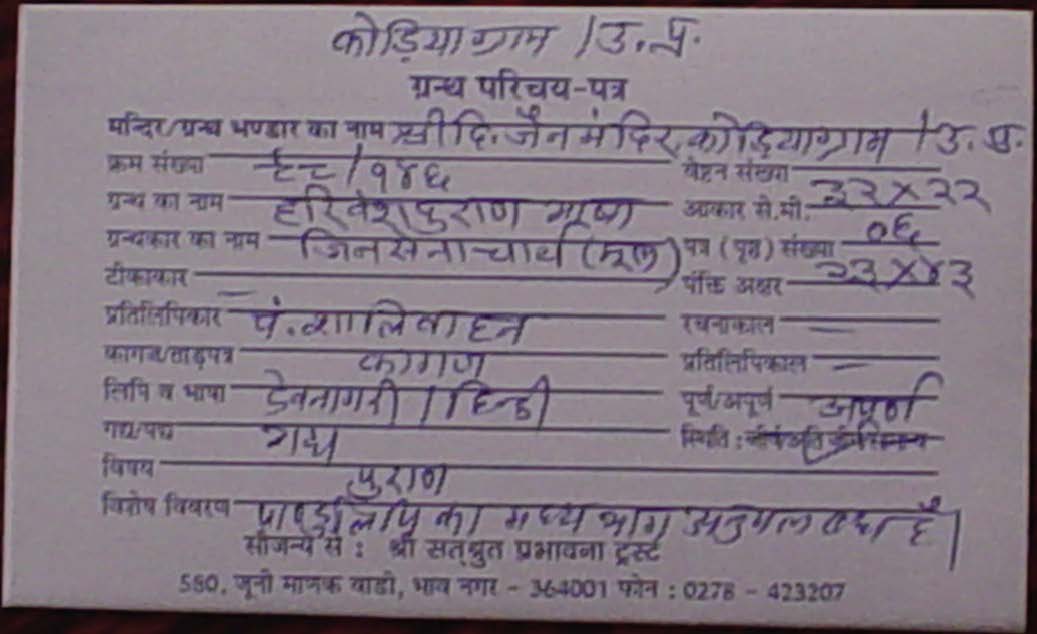 कोड़ियाग्राम /उ.प्र.
ग्रन्थ परिचय-पत्र
मन्दिर/ग्रन्थ भण्डार का नाम श्री दि. जैन मंदिर, कोड़ियाग्राम /उ. प्र.
क्रम संख्या /१४६ वेष्टन संख्या
ग्रन्थ का नाम हरिवंशपुराण भाषा आकार से.मी. ३२X२२
ग्रन्थकार का नाम जिनसेनाचार्य (मूल) पत्र (पृष्ठ) संख्या ०६
टीकाकार — पंक्ति अक्षर २३X४३
प्रतिलिपिकार पं. शालिवाहन रचनाकाल —
कागज/ताड़पत्र कागज प्रतिलिपिकाल —
लिपि व भाषा देवनागरी / हिन्दी पूर्ण/अपूर्ण अपूर्ण
गद्य/पद्य गद्य स्थिति :
विषय पुराण
विशेष विवरण पाण्डुलिपि का मध्य भाग अनुपलब्ध है।
सौजन्य से : श्री सत्श्रुत प्रभावना ट्रस्ट
580, जूनी माणक वाडी, भाव नगर - 364001 फोन : 0278 - 423207